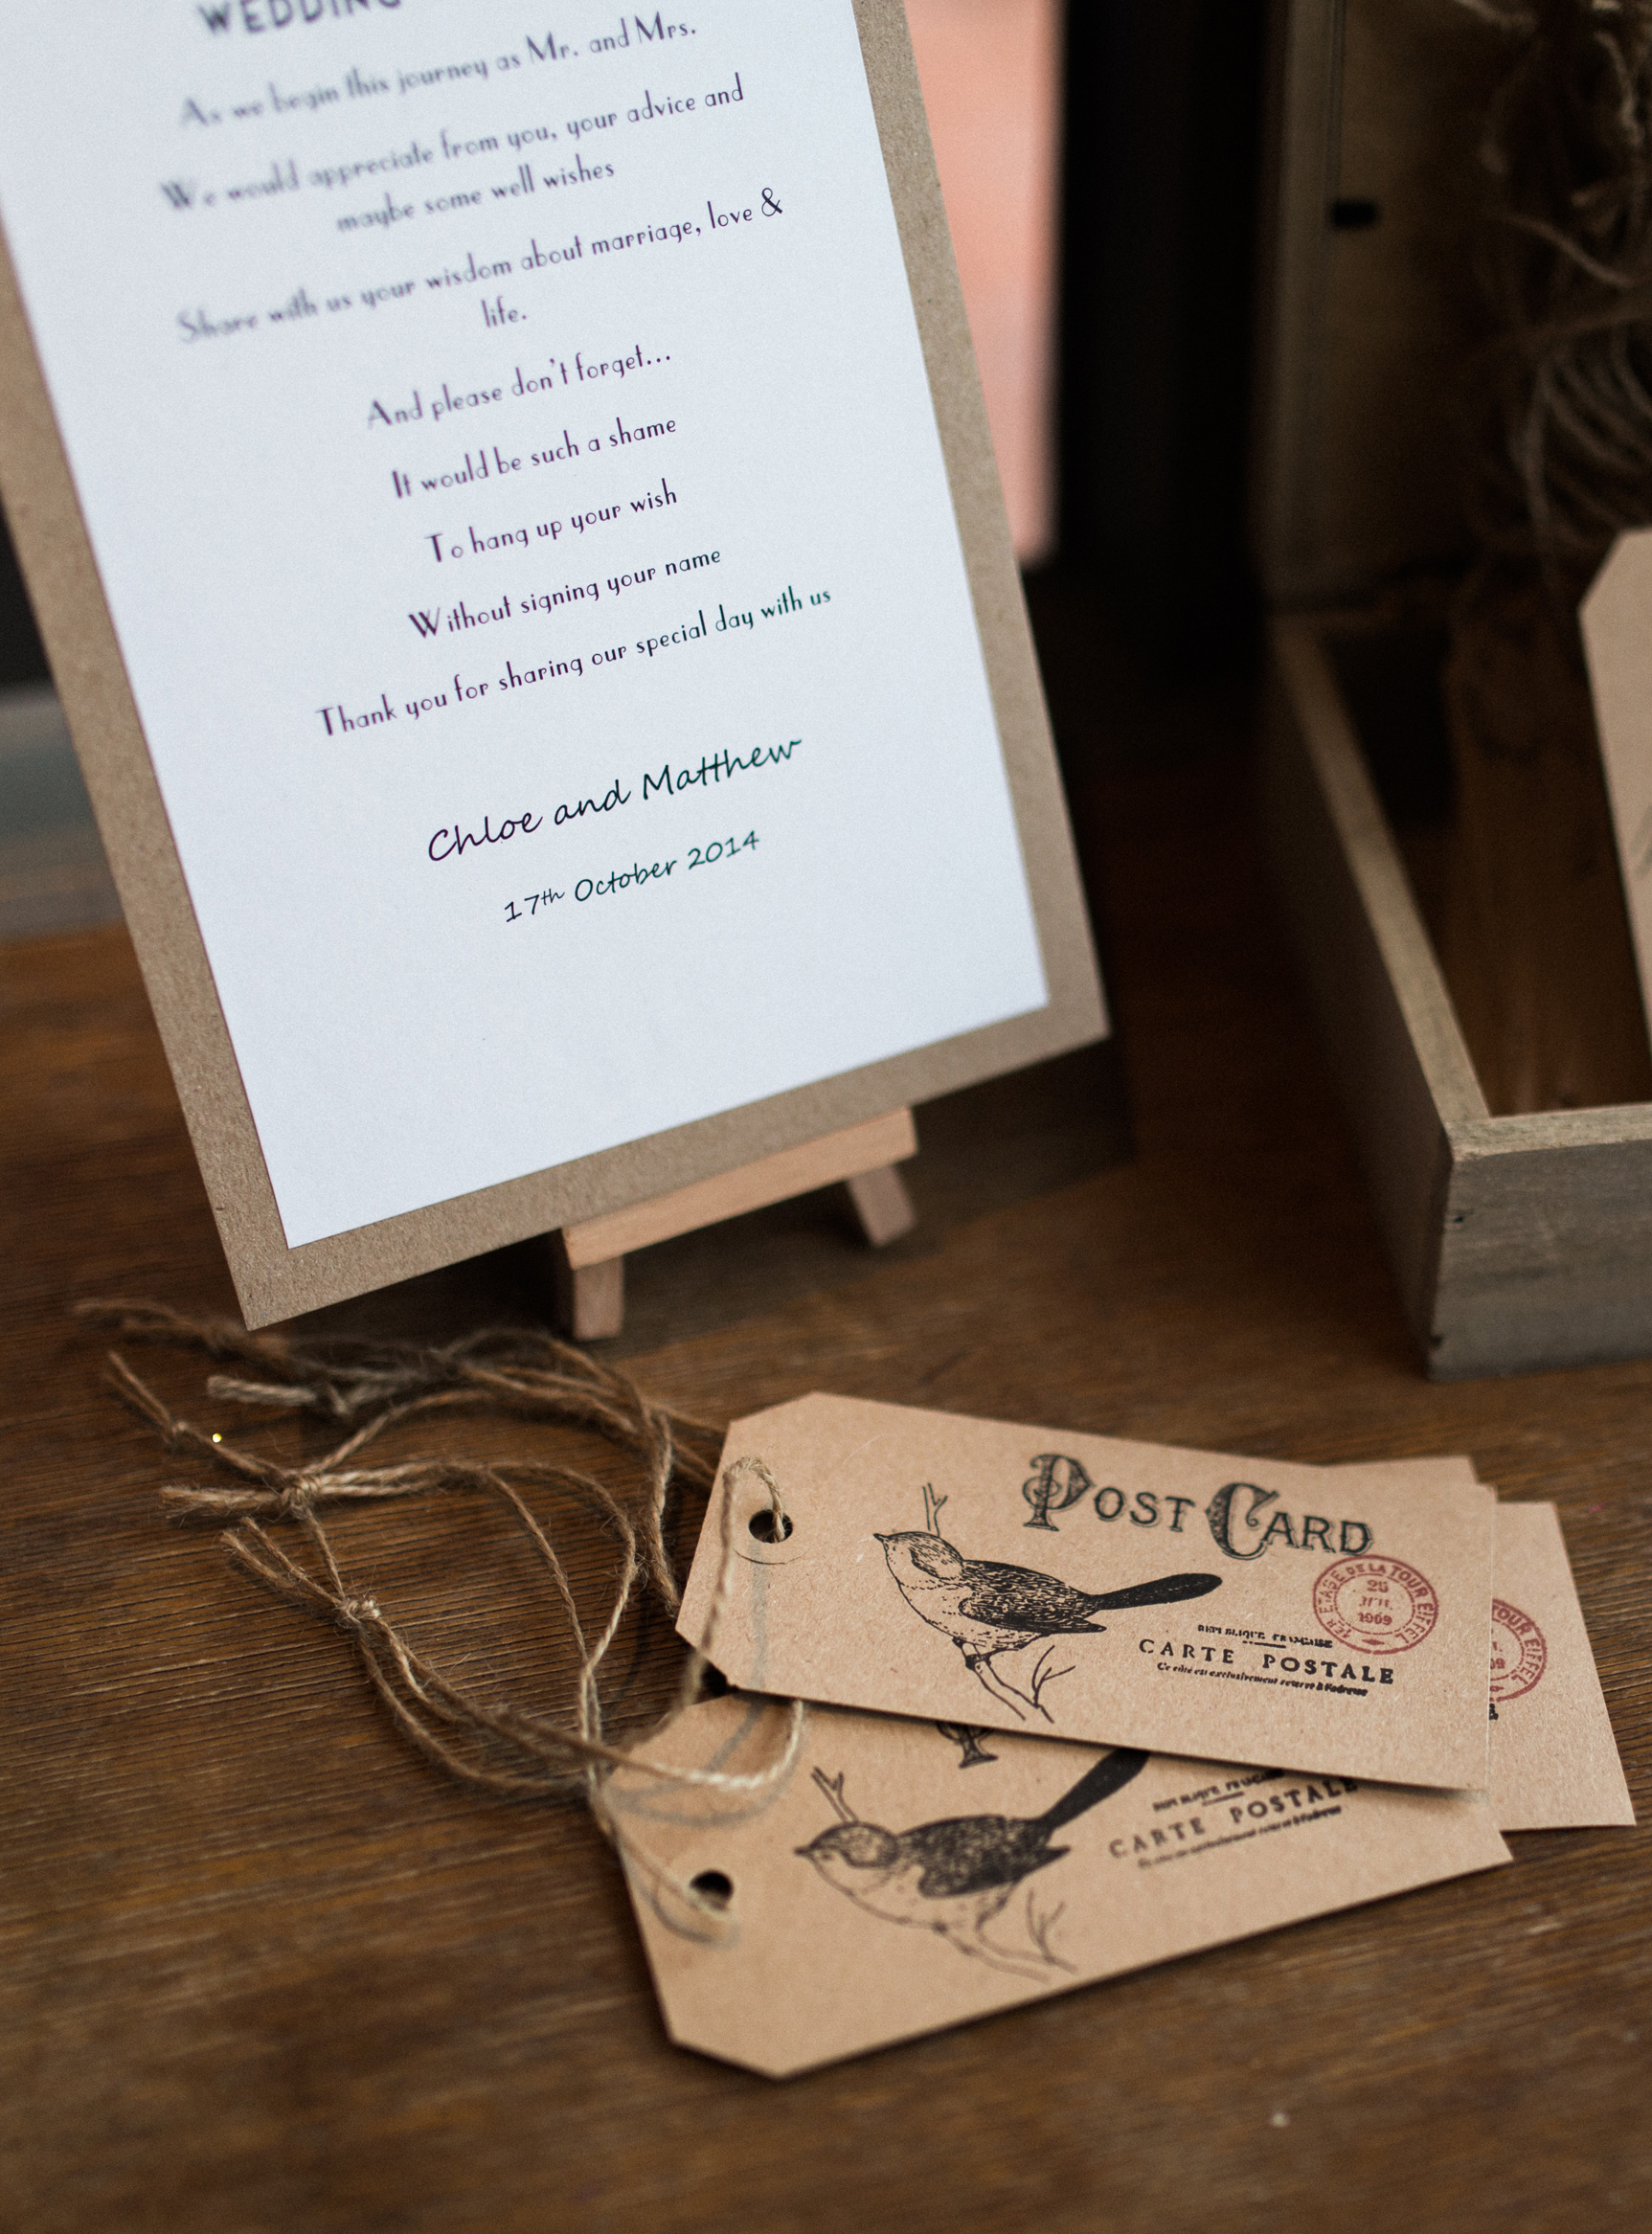 WEDDING
As we begin this journey as Mr. and Mrs.
We would appreciate from you, your advice and
maybe some well wishes
Share with us your wisdom about marriage, love &
life.
And please don't forget...
It would be such a shame
To hang up your wish
Without signing your name
Thank you for sharing our special day with us
Chloe and Matthew
17th October 2014
POST CARD
1ER ETAGE DE LA TOUR EIFFEL
25
1909
CARTE POSTALE
TOUR EIFFEL
CARTE POSTALE